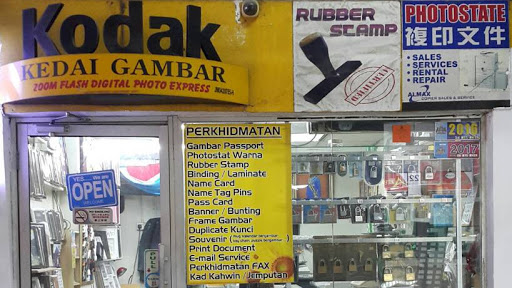 Kodak
KEDAI GAMBAR
ZOOM FLASH DIGITAL PHOTO EXPRESS
RUBBER
STAMP
PHOTOSTATE
複印文件
• SALES
• SERVICES
• RENTAL
• REPAIR
ALMAX
COPIER SALES & SERVICE
YES
We are
OPEN
PERKHIDMATAN
Gambar Passport
Photostat Warna
Rubber Stamp
Binding / Laminate
Name Card
Name Tag Pins
Pass Card
Banner / Bunting
Frame Gambar
Duplicate Kunci
Souvenir
Print Document
E-mail Service
Perkhidmatan FAX
Kad Kahwin / Jemputan
2016
2017